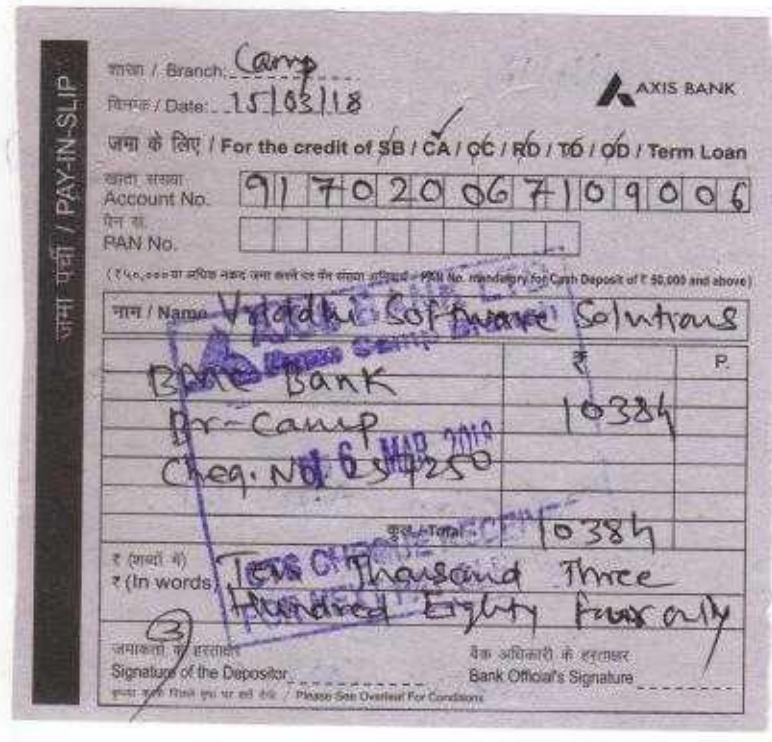 जमा पर्ची / PAY-IN-SLIP
शाखा / Branch: Camp
दिनांक / Date: 15/03/18
AXIS BANK
जमा के लिए / For the credit of SB / CA / CC / RD / TD / OD / Term Loan
खाता संख्या
Account No. 917020067109006
पैन सं.
PAN No.
(₹५०,०००या अधिक नकद जमा करने पर पैन संख्या अनिवार्य - PAN No. mandatory for Cash Deposit of ₹ 50,000 and above)
नाम / Name Software Solutions
₹ P.
Bank
Br-Camp 10384
Cheq. No.
6 MAR 2018
कुल / Total 10384
₹ (शब्दों में)
₹ (In words) Ten Thousand Three
Hundred Eighty Four only
3
जमाकर्ता के हस्ताक्षर
Signature of the Depositor
बैंक अधिकारी के हस्ताक्षर
Bank Official's Signature
/ Please See Overleaf For Conditions